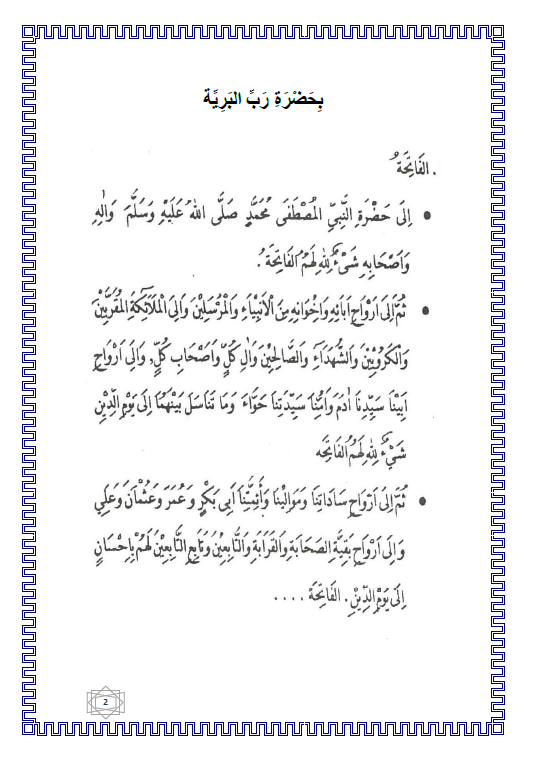 بِحَضْرَةِ رَبِّ البَرِيَّة
. الفَاتِحَةُ
• اِلَى حَضْرَةِ النَّبِيِّ المُصْطَفَى مُحَمَّدٍ صَلَّى اللهُ عَلَيْهِ وَسَلَّمَ وَاٰلِهِ
وَاَصْحَابِهِ شَيْءٌ لِلهِ لَهُمُ الفَاتِحَةُ .
• ثُمَّ اِلَى اَرْوَاحِ اٰبَائِهِ وَاِخْوَانِهِ مِنَ الْاَنْبِيَاءِ وَالْمُرْسَلِيْنَ وَاِلَى الْمَلَائِكَةِ المُقَرَّبِيْنَ
وَالْكَرُوْبِيِّنَ وَالشُّهَدَاءِ وَالصَّالِحِيْنَ وَاٰلِ كُلٍّ وَاَصْحَابِ كُلٍّ, وَاِلَى اَرْوَاحِ
اَبِيْنَا سَيِّدِنَا اٰدَمَ وَاُمِّنَا سَيِّدَتِنَا حَوَّاءَ وَمَا تَنَاسَلَ بَيْنَهُمَا اِلَى يَوْمِ الدِّيْنِ
شَيْءٌ لِلهِ لَهُمُ الفَاتِحَه
• ثُمَّ اِلَى اَرْوَاحِ سَادَاتِنَا وَمَوَالِيْنَا وَأَئِمَّتِنَا اَبِى بَكْرٍ وَعُمَرَ وَعُثْمَانَ وَعَلِي
وَاِلَى اَرْوَاحِ بَقِيَّةِ الصَحَابَةِ وَالقَرَابَةِ وَالتَّابِعِيْنَ وَتَابِعِ التَّابِعِيْنَ لَهُمْ بِاِحْسَانٍ
اِلَى يَوْمِ الدِّيْنِ. الفَاتِحَة ....
2